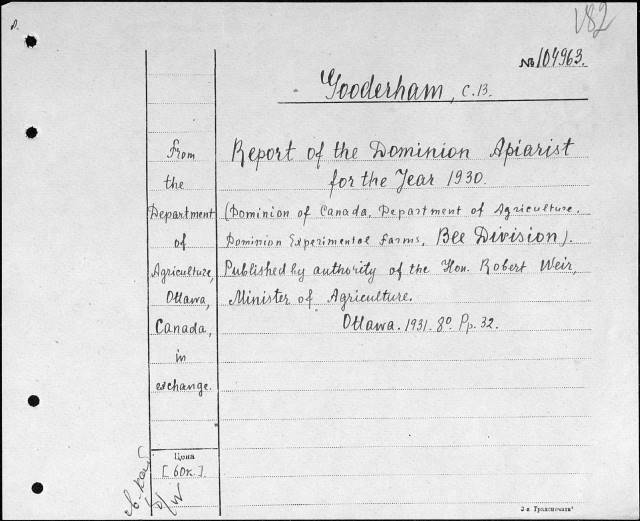 V82
№ 104963.
Gooderham, C.B.
From
the
Department
of
Agriculture,
Ottawa,
Canada,
in
exchange.
Report of the Dominion Apiarist
for the Year 1930.
(Dominion of Canada, Department of Agriculture.
Dominion Experimental Farms, Bee Division).
Published by authority of the Hon. Robert Weir,
Minister of Agriculture.
Ottawa. 1931. 8º. Pp. 32.
Цена
[60к.].